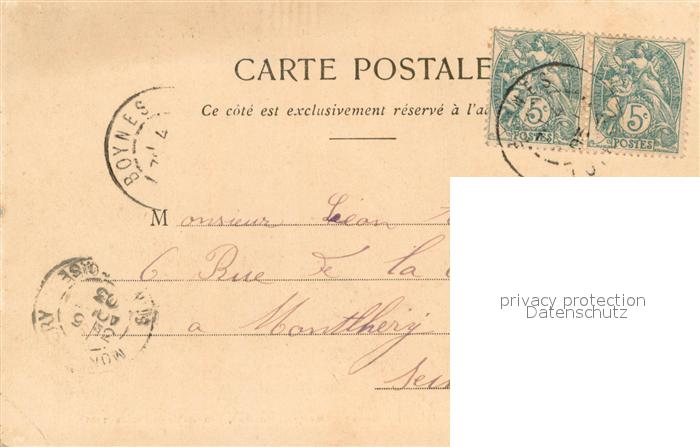 CARTE POSTALE
Ce côté est exclusivement réservé à l'a
BOYNES
5c
POSTES
5c
POSTES
M Monsieur Léon
6 Rue de la
a Montlhéry
Sei
privacy protection
Datenschutz